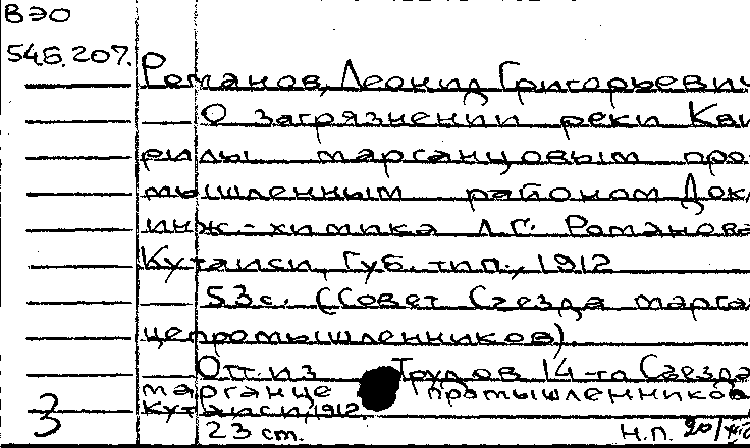 ВЭО
546.207.
Романов, Леонид Григорьевич
О загрязнении реки Кви
рилы марганцовым про
мышленным районом Док.
инж-химика Л.Г. Романова
Кутаиси, Губ. тип., 1912
53с. (Совет Съезда марган
цепромышленников).
Отт. из Трудов 14-го Съезда
марганце промышленников
Кутаиси, 1912.
3 23 ст. Н.П. 20/